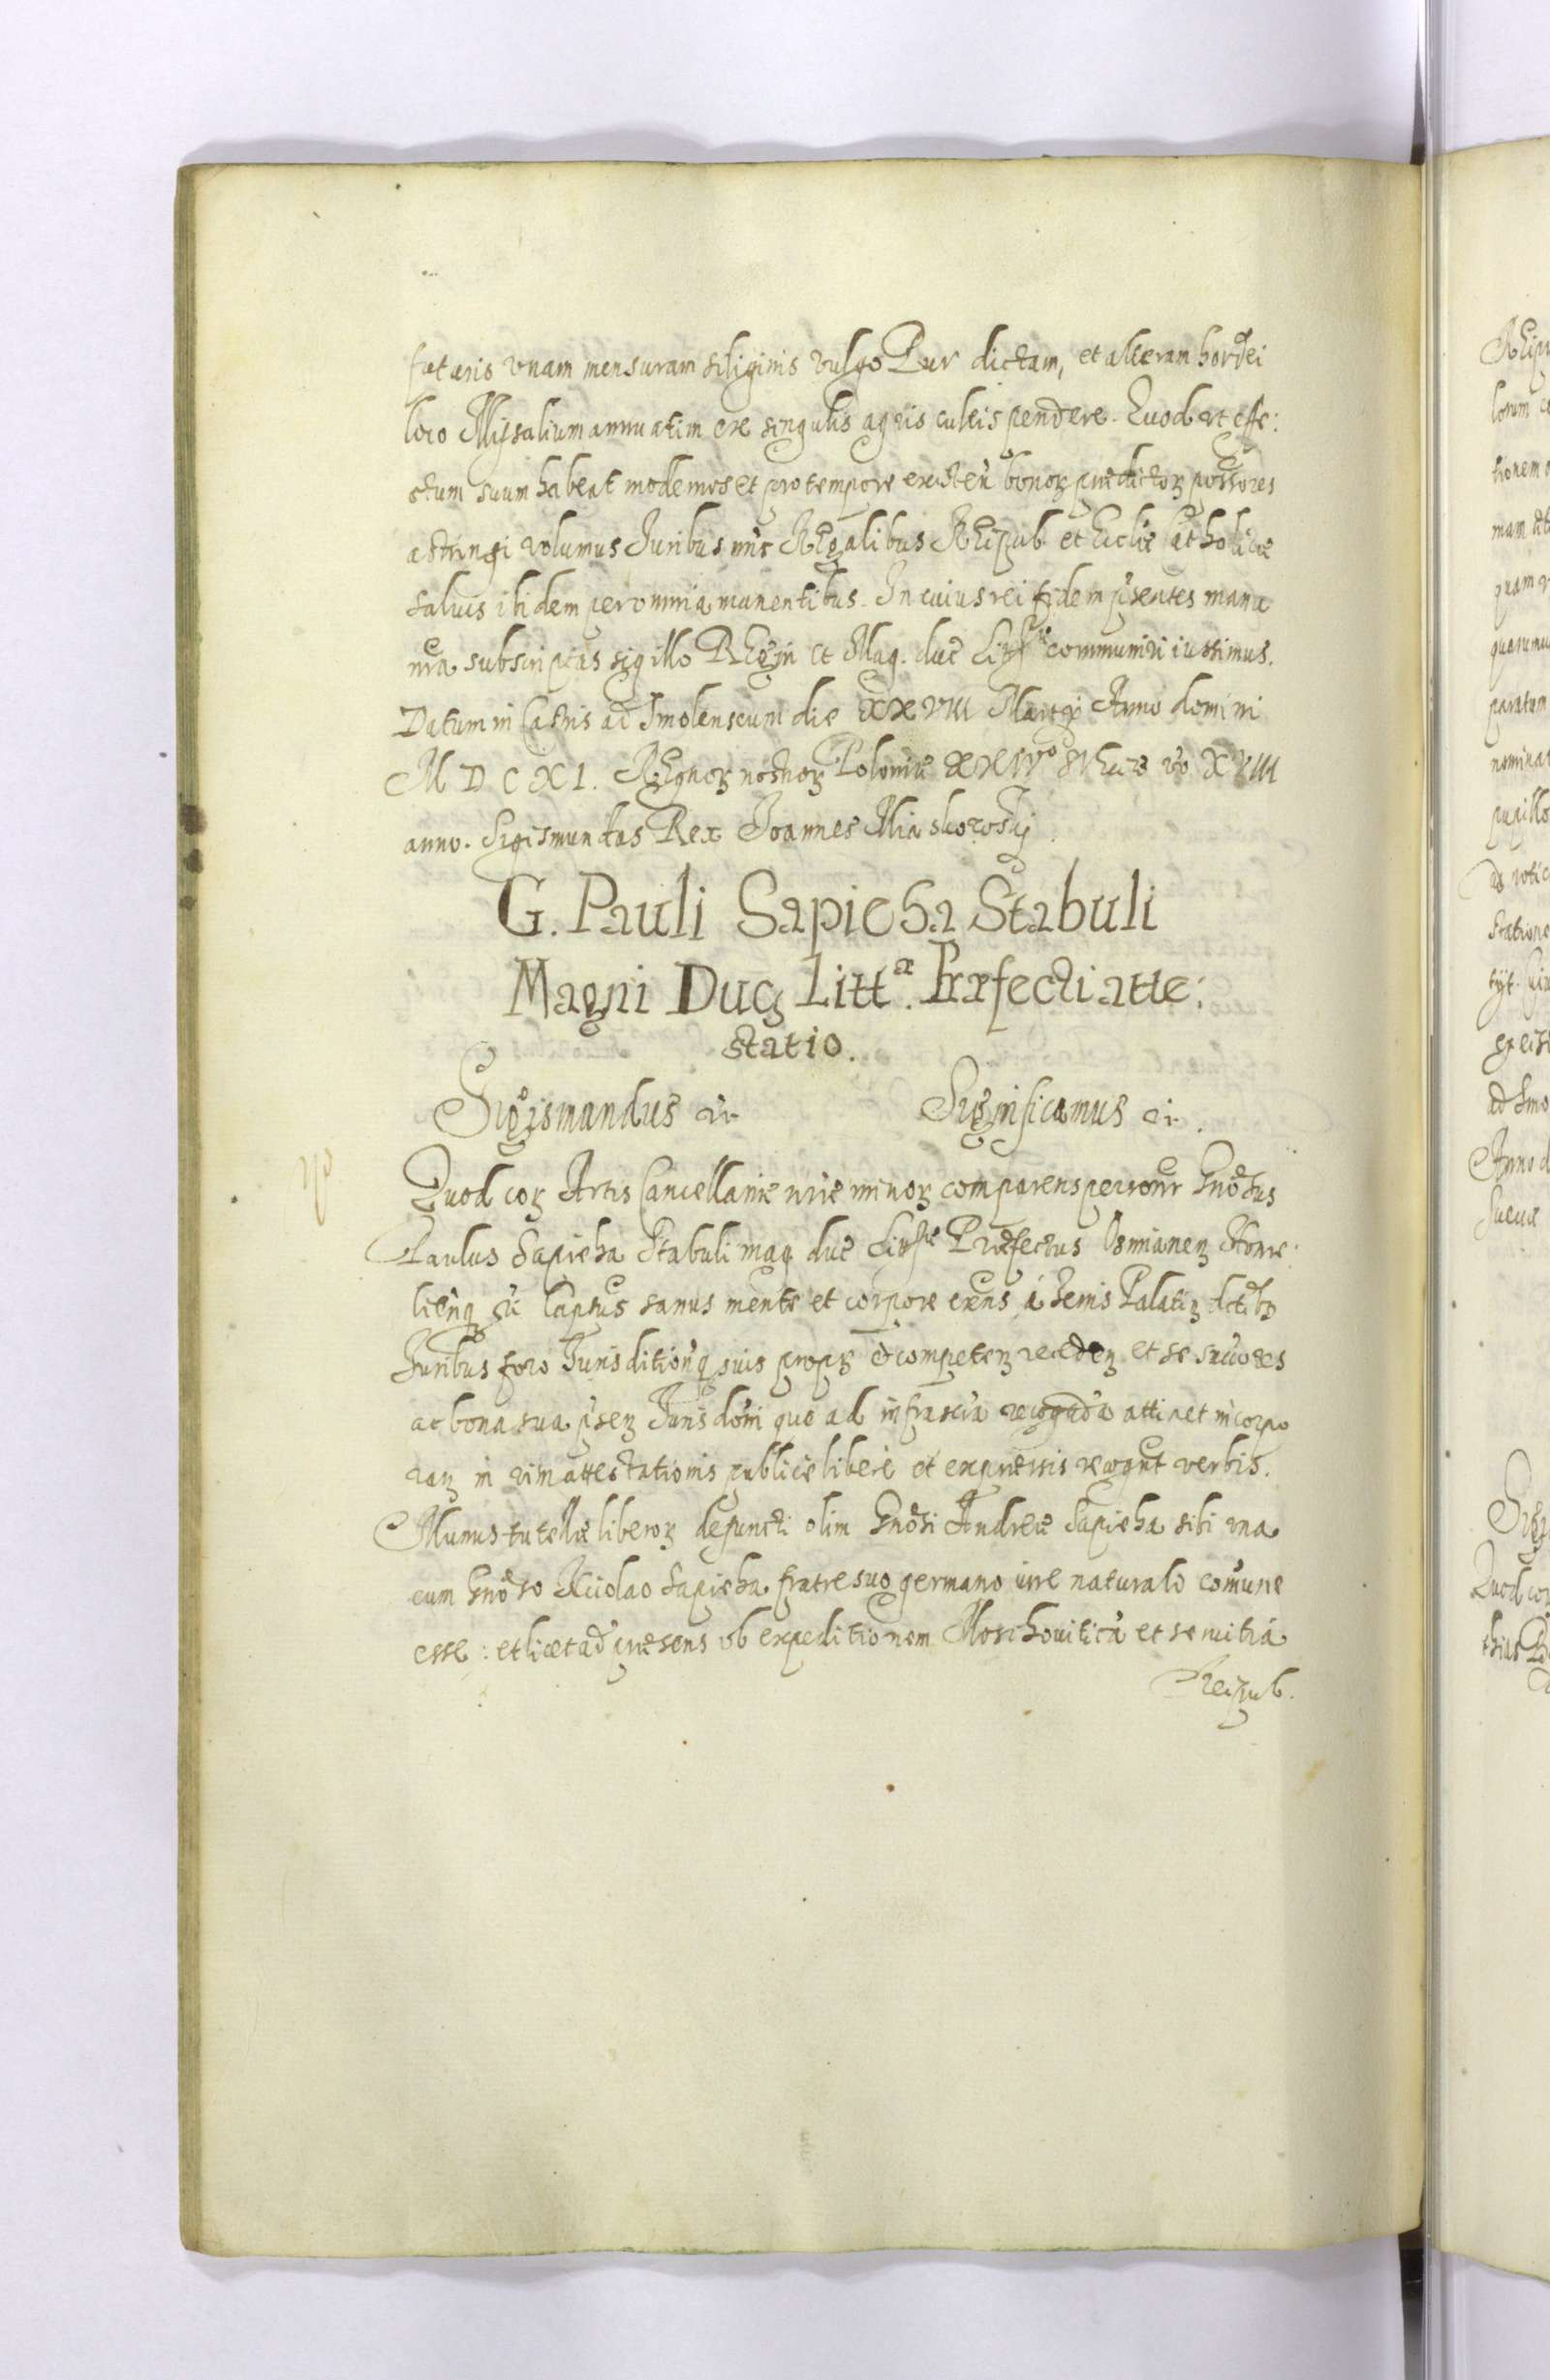 futuris vnam mensuram siliginis vulgo Pur dictam, et alteram hordei
loco Missalium annuatim ex singulis agris cultis pendere. Quod ut effe:
ctum suum habeat modernos et pro tempore existen bonorz prædictorz possores
astringi volumus Juribus nris Regalibus Reipub. et Eccliæ Catholicæ
saluis ibidem per omnia manentibus. In cuius rei fidem psentes manu
nra subscriptas sigillo Regni et Mag. duc Litt communiri iussimus.
Datum in Castris ad Smolenscum die XXVIII Martij Anno domini
MDCXI. Regnorz nostrorz Poloniæ XXIVo Sueciæ vo XVIII
anno. Sigismundus Rex Joannes Miaskowskij
G. Pauli Sapieha Stabuli
Magni Ducz Littæ. Præfecti atte:
statio.
Sigismundus etc Significamus etc.
Quod corz Actis Cancellariæ nræ minorz comparens personr Gnosus
Paulus Sapieha Stabuli mag duc Litt Præfectus Osmianenz
Captus sanus mente et corpore exns á Terris Palatiz
Juribus foro Jurisditionq suis proprz et competenz recedenz et se succores
ac bona sua psenz Jurisdoni quo ad infrascra recognda attinet incorpo
ranz in vim attestationis publice libere et expressis recognt verbis.
Munus tutellæ liberorz defuncti olim Gnosi Andreæ Sapieha sibi una
cum Gnoso Nicolao Sapieha fratre suo germano iure naturali comune
esse: et licet ad præsens ob expeditionem Moschouiticá et seruitiá
Reipub.